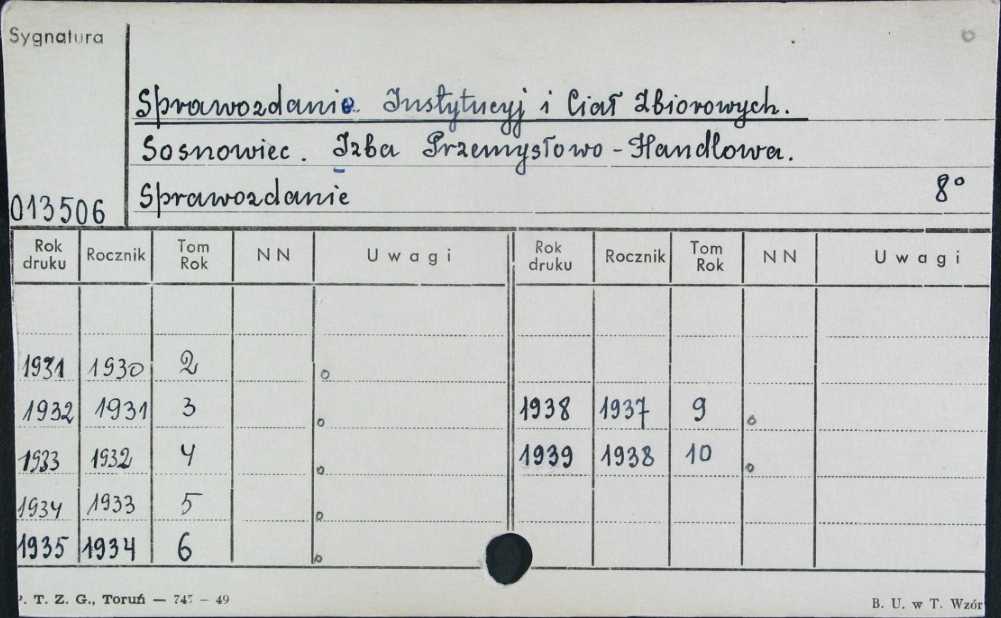 Sygnatura
Sprawozdanie Instytucyj i Ciał Zbiorowych.
Sosnowiec. Izba Przemysłowo-Handlowa.
013506 Sprawozdanie 8°
Rok druku Rocznik Tom Rok NN Uwagi Rok druku Rocznik Tom Rok NN Uwagi
1931 1930 2
1932 1931 3 1938 1937 9
1933 1932 4 1939 1938 10
1934 1933 5
1935 1934 6
. T. Z. G., Toruń — 747 — 49 B. U. w T. Wzór